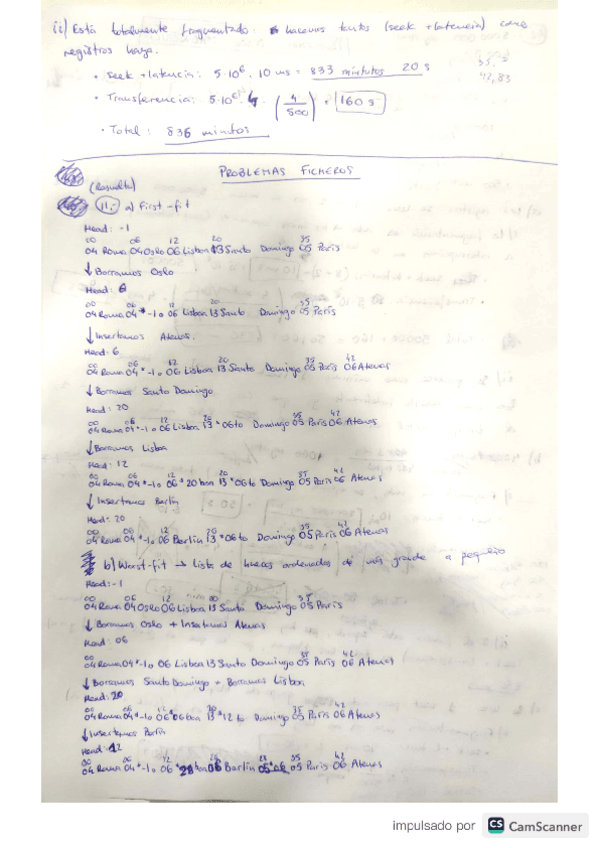 ii) Está totalmente fragmentado: hacemos tantos (seek + latencia) como
registros haya.
• Seek + latencia: 5·10⁶ · 10 ms = 833 minutos 20 s
• Transferencia: 5·10⁶ · 4 · (4/500) = 160 s
• Total: 836 minutos
PROBLEMAS FICHEROS
(Resuelto)
11.- a) First-fit
Head: -1
00 06 12 20 35
04 Roma 04 Oslo 06 Lisboa 13 Santo Domingo 05 París
↓ Borramos Oslo
Head: 6
00 06 12 20 35
04 Roma 04 * -1 o 06 Lisboa 13 Santo Domingo 05 París
↓ Insertamos Atenas.
Head: 6
00 06 12 20 35 42
04 Roma 04 * -1 o 06 Lisboa 13 Santo Domingo 05 París 06 Atenas
↓ Borramos Santo Domingo
Head: 20
00 06 12 20 35 42
04 Roma 04 * -1 o 06 Lisboa 13 * 06to Domingo 05 París 06 Atenas
↓ Borramos Lisboa
Head: 12
00 06 12 20 35 42
04 Roma 04 * -1 o 06 * 20 boa 13 * 06 to Domingo 05 París 06 Atenas
↓ Insertamos Berlín
Head: 20
00 06 12 20 35 42
04 Roma 04 * -1 o 06 Berlín 13 * 06 to Domingo 05 París 06 Atenas
b) Worst-fit → Lista de huecos ordenados de más grande a pequeño
Head: -1
00 06 12 20 35
04 Roma 04 Oslo 06 Lisboa 13 Santo Domingo 05 París
↓ Borramos Oslo + Insertamos Atenas
Head: 06
00 42
04 Roma 04 * -1 o 06 Lisboa 13 Santo Domingo 05 París 06 Atenas
↓ Borramos Santo Domingo + Borramos Lisboa
Head: 20
00 06 12 20 35 42
04 Roma 04 * -1 o 06 * 06 boa 13 * 12 to Domingo 05 París 06 Atenas
↓ Insertamos Berlín
Head: 12
00 06 12 20 28 35 42
04 Roma 04 * -1 o 06 * 28 boa 06 Berlín 05 * 06 05 París 06 Atenas
impulsado por CS CamScanner